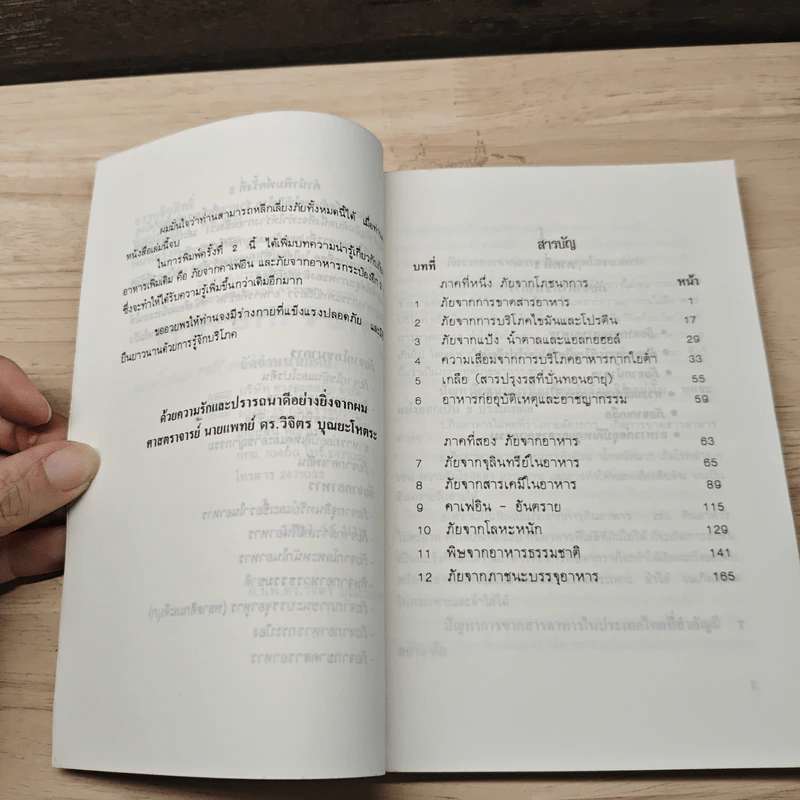 ผมมั่นใจว่าท่านสามารถหลีกเลี่ยงภัยทั้งหมดนี้ได้ เมื่อท่าน
หนังสือเล่มนี้จบ
ในการพิมพ์ครั้งที่ 2 นี้ ได้เพิ่มบทความน่ารู้เกี่ยวกับ
อาหารเพิ่มเติม คือ ภัยจากคาเฟอีน และภัยจากอาหารกระป๋องอีก
ซึ่งจะทำให้ได้รับความรู้เพิ่มขึ้นกว่าเดิมอีกมาก
ขออวยพรให้ท่านจงมีร่างกายที่แข็งแรงปลอดภัย และมี
ยืนยาวนานด้วยการรู้จักบริโภค
ด้วยความรักและปรารถนาดีอย่างยิ่งจากผม
ศาสตราจารย์ นายแพทย์ ดร.วิจิตร บุณยะโหตระ
สารบัญ
บทที่
ภาคที่หนึ่ง ภัยจากโภชนาการ หน้า
1 ภัยจากการขาดสารอาหาร 1
2 ภัยจากการบริโภคไขมันและโปรตีน 17
3 ภัยจากแป้ง น้ำตาลและแอลกอฮอล์ 29
4 ความเสื่อมจากการบริโภคอาหารกากใยต่ำ 33
5 เกลือ (สารปรุงรสที่บั่นทอนอายุ) 55
6 อาหารก่ออุบัติเหตุและอาชญากรรม 59
ภาคที่สอง ภัยจากอาหาร 63
7 ภัยจากจุลินทรีย์ในอาหาร 65
8 ภัยจากสารเคมีในอาหาร 89
9 คาเฟอีน - อันตราย 115
10 ภัยจากโลหะหนัก 129
11 พิษจากอาหารธรรมชาติ 141
12 ภัยจากภาชนะบรรจุอาหาร 165